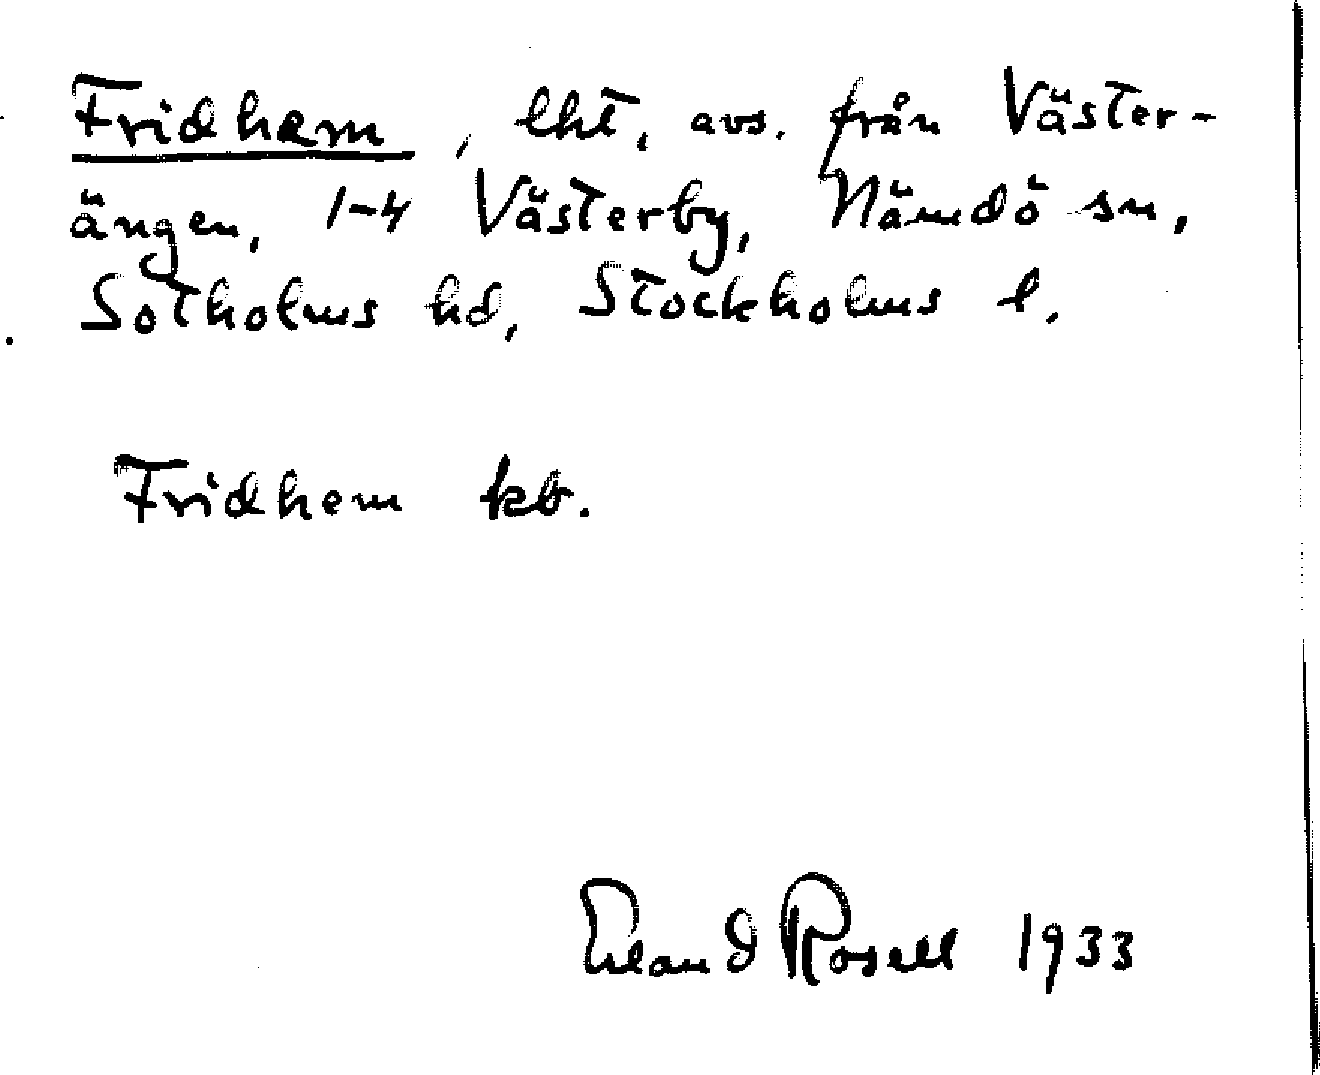 Fridhem, lht, avs. från Väster-
ängen, 1-4 Västerby, Nämdö sn,
Sotholms hd, Stockholms l.
Fridhem kb.
Erland Rosell 1933